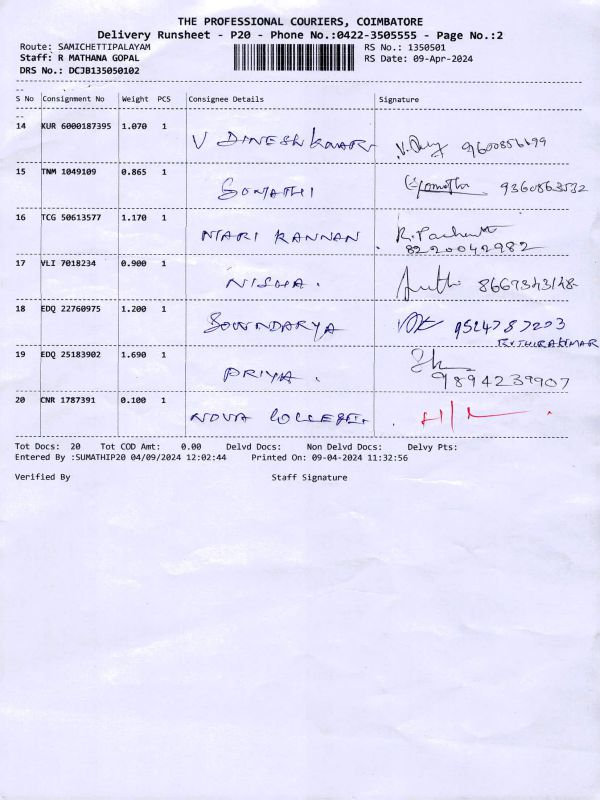 THE PROFESSIONAL COURIERS, COIMBATORE
Delivery Runsheet - P20 - Phone No.:0422-3505555 - Page No.:2
Route: SAMICHETTIPALAYAM
RS No.: 1350501
Staff: R MATHANA GOPAL
RS Date: 09-Apr-2024
DRS No.: DCJB135050102
S No Consignment No Weight PCS Consignee Details Signature
14 KUR 6000187395 1.070 1 V DINESHKUMAR 9600856699
15 TNM 1049109 0.865 1 GOMATHI Gomathi 9360863532
16 TCG 50613577 1.170 1 MARI KANNAN
8220042982
17 VLI 7018234 0.900 1 NISHA. 8667343148
18 EDQ 22760975 1.200 1 SOWNDARYA 9524787203
19 EDQ 25183902 1.690 1 PRIYA.
9894239907
20 CNR 1787391 0.100 1 NOVA COLLEGE
Tot Docs: 20 Tot COD Amt: 0.00 Delvd Docs: Non Delvd Docs: Delvy Pts:
Entered By :SUMATHIP20 04/09/2024 12:02:44 Printed On: 09-04-2024 11:32:56
Verified By Staff Signature